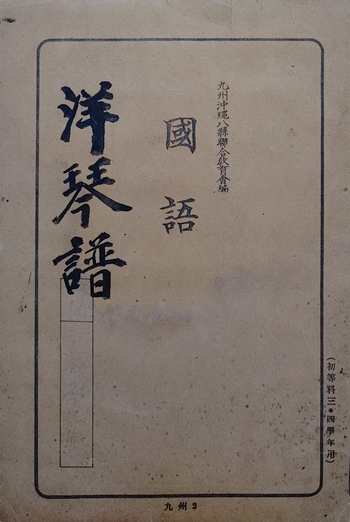 九州沖繩八縣聯合敎育會編
國語
洋琴譜
(初等科三•四學年用)
九州2